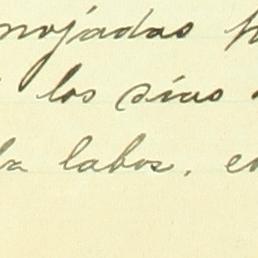 mojadas
los días
la labor, e